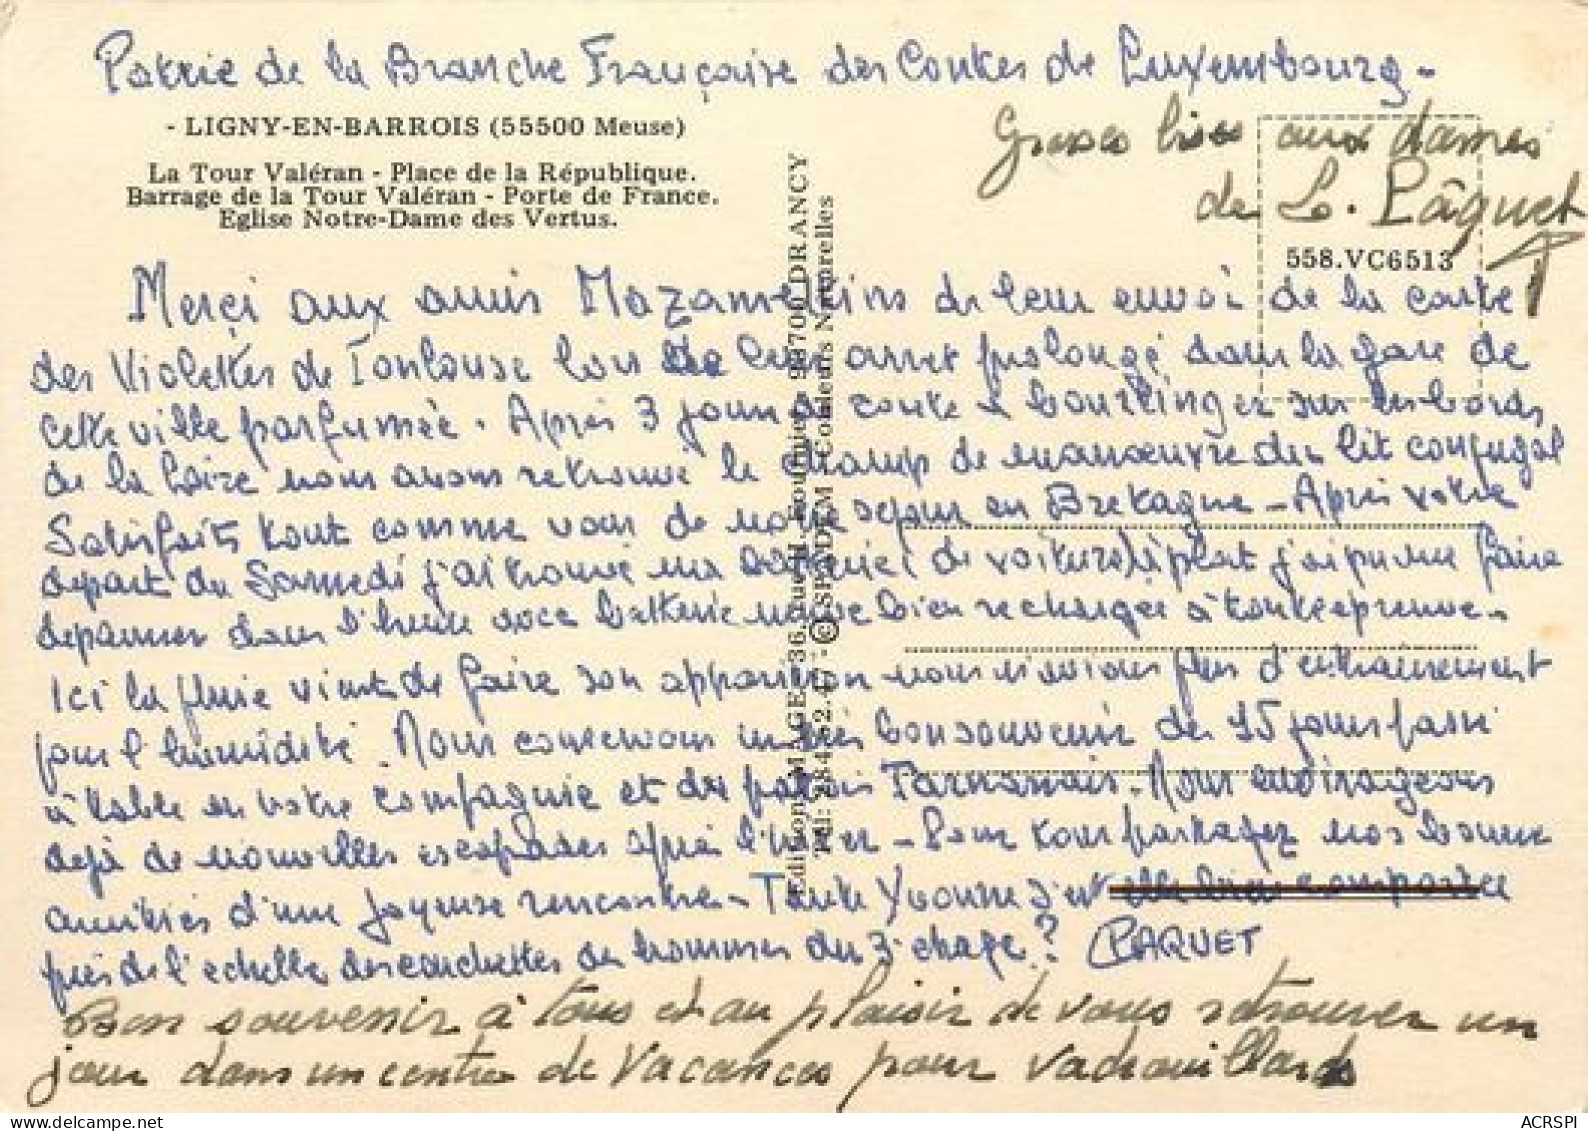 Patrie de la Branche Française des Comtes de Luxembourg -
- LIGNY-EN-BARROIS (55500 Meuse)
La Tour Valéran - Place de la République.
Barrage de la Tour Valéran - Porte de France.
Eglise Notre-Dame des Vertus.
Grosses bises aux dames
de L. Pâquet
558.VC6513
Editions MAGE - 36, 93700 DRANCY
Tél: - © SPADEM Couleurs Naturelles
Merci aux amis Mazametains de leur envoi de la carte
des Violettes de Toulouse lors de leur arret prolongé dans la gare de
cette ville parfumée. Après 3 jours de conte à bourlinguer sur les bords
de la Loire nous avons retrouvé le champ de manœuvre du lit conjugal
Satisfaits tout comme vous de notre sejour en Bretagne - Après votre
depart du Samedi j'ai trouvé ma batterie (de voiture) à plat j'ai pu me faire
depanner dans l'heure avec batterie neuve bien rechargée à toute epreuve -
Ici la pluie vient de faire son apparition nous n'avions plus d'entrainement
pour l'humidité. Nous conservons un très bon souvenir des 15 jours passé
à table en votre compagnie et du patois Tarnanais. Nous envirageons
dejà de nouvelles escapades après l'hiver - Pour tous partagez nos bonne
amitiés d'une joyeuse rencontre - Tante Yvonne s'est elle bien comportée
près de l'echelle des couchettes des hommes du 3e etage ? PAQUET
Bon souvenir à tous et au plaisir de vous retrouver un
jour dans un centre de vacances pour vadrouillards
ACRSPI